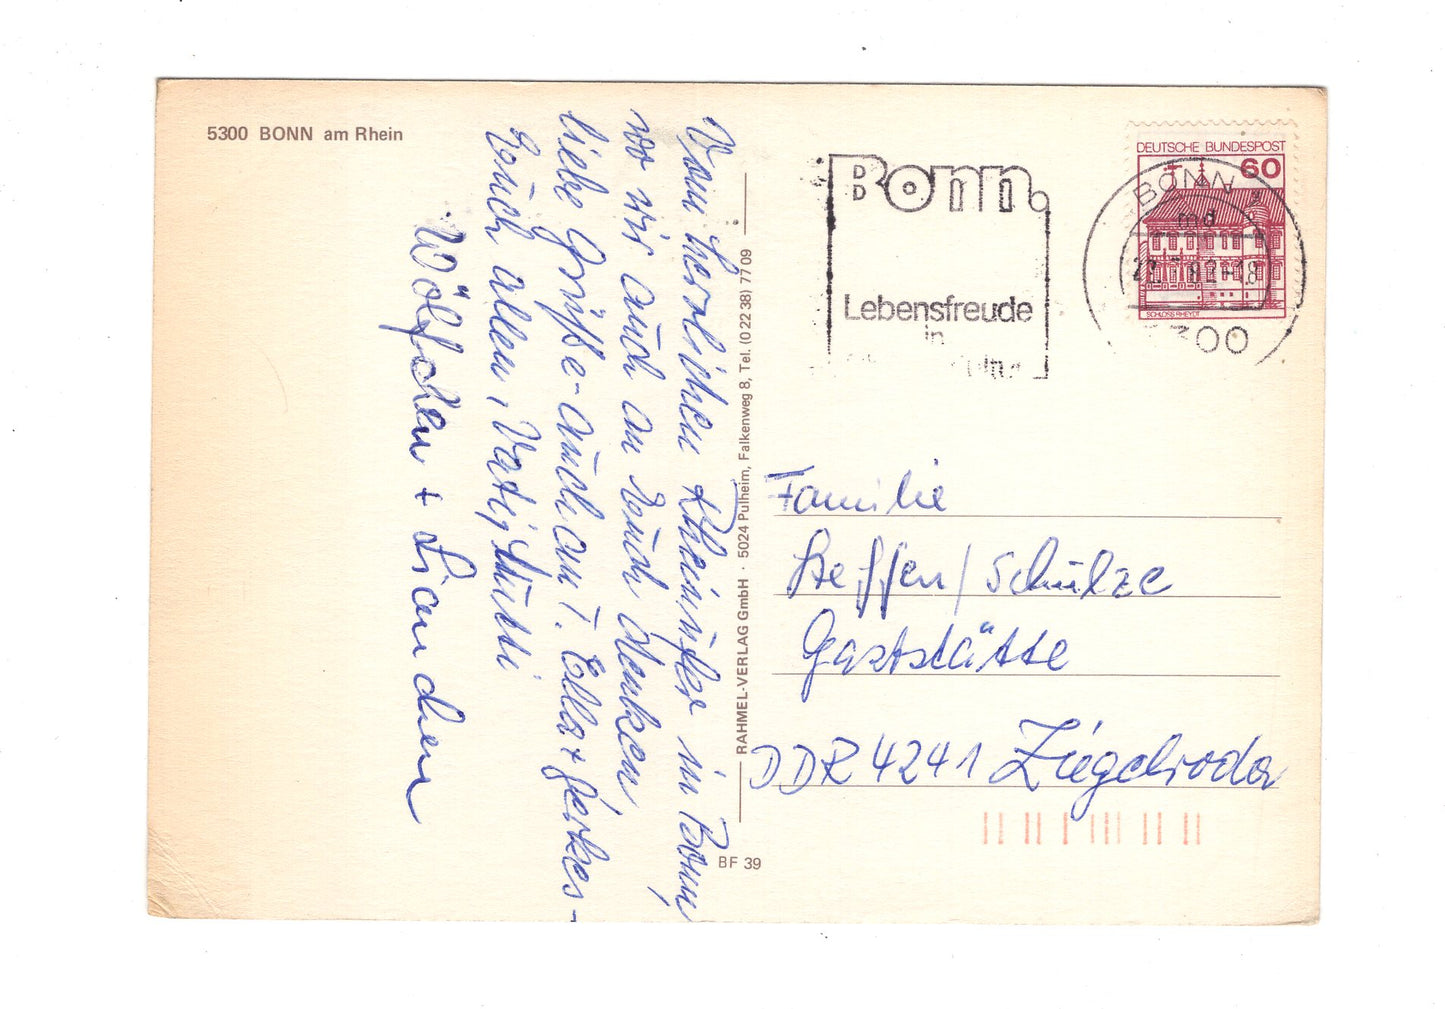 5300 BONN am Rhein
Vom herrlichen Rheinufer in Bonn,
wo wir auch an Euch denken,
liebe Grüße - auch am T. Ella +
Euch allen, Vati, Mutti
Wölfchen + Lianchen
RAHMEL-VERLAG GmbH · 5024 Pulheim, Falkenweg 8, Tel. (0 22 38) 77 09
BF 39
Bonn.
Lebensfreude
in
DEUTSCHE BUNDESPOST
60
SCHLOSS RHEYDT
BONN
md
5300
Familie
Steffen / Schulze
Gaststätte
DDR 4241 Ziegelroda